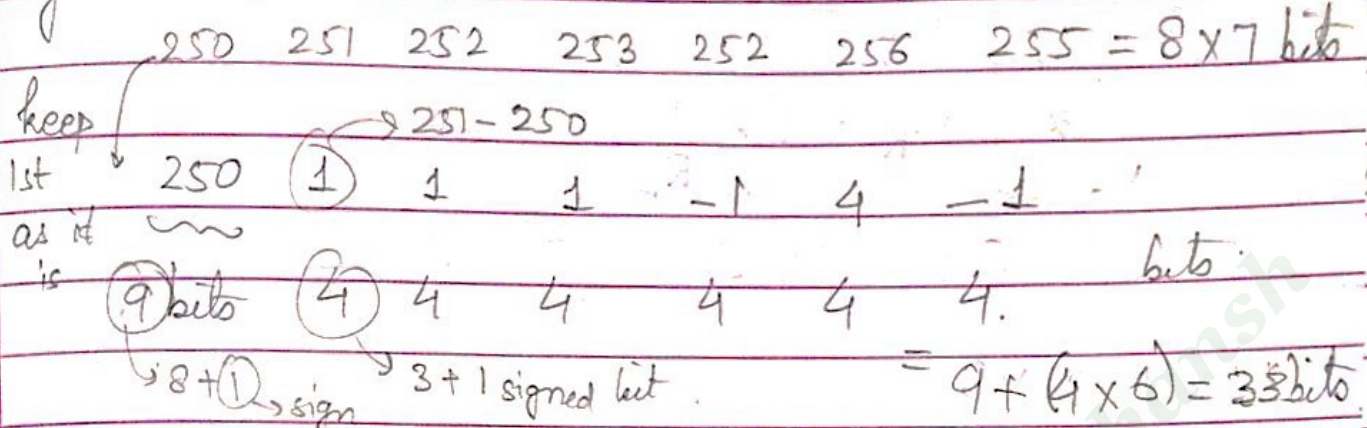 250 251 252 253 252 256 255 = 8×7 bits
keep 251-250
1st 250 1 1 1 -1 4 -1
as it
is 9 bits 4 4 4 4 4 4. bits.
8+1 sign 3+1 signed bit. = 9+(4×6)=33bits.